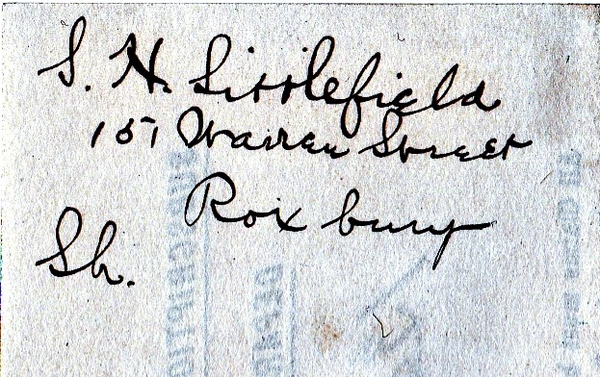 S. H. Littlefield
151 Warren Street
Roxbury
Sh.